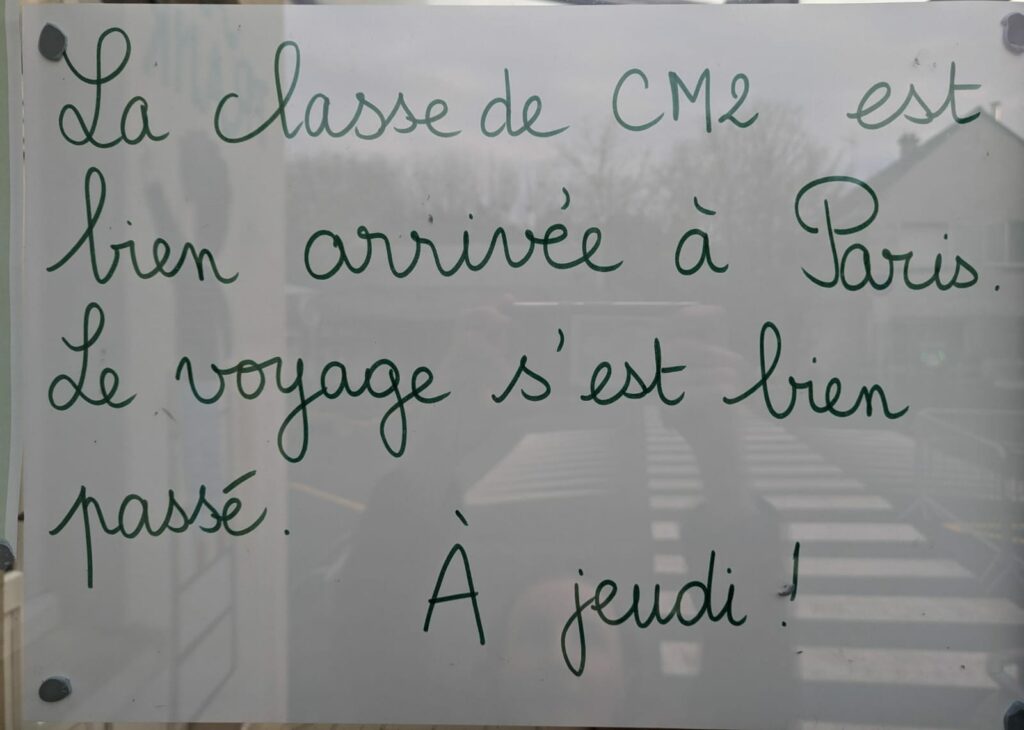 La classe de CM2 est
bien arrivée à Paris.
Le voyage s'est bien
passé.
À jeudi !